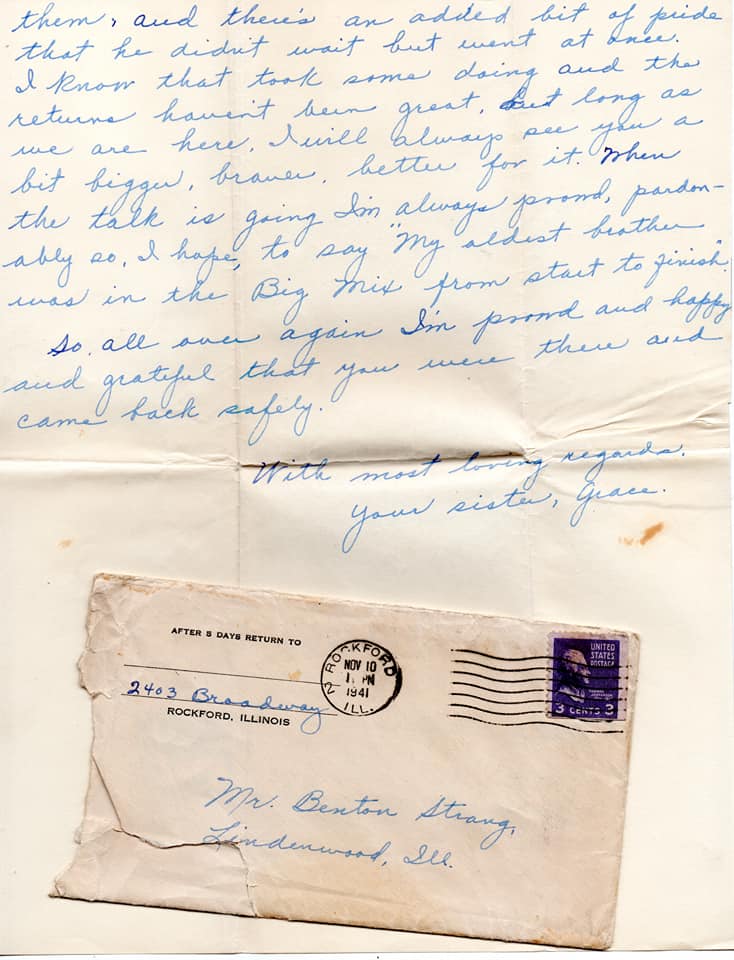 them, and there's an added bit of pride
that he didn't wait but went at once.
I know that took some doing and the
returns haven't been great, but long as
we are here, I will always see you a
bit bigger, braver, better for it. When
the talk is going I'm always proud, pardon-
ably so, I hope, to say "My oldest brother
was in the Big Mix from start to finish."
So, all over again I'm proud and happy
and grateful that you were there and
came back safely.
With most loving regards,
Your sister, Grace.
AFTER 5 DAYS RETURN TO
2403 Broadway
ROCKFORD, ILLINOIS
ROCKFORD
NOV 10
PM
1941
2 ILL.
UNITED
STATES
POSTAGE
3 CENTS 3
Mr. Benton Strang,
Lindenwood, Ill.